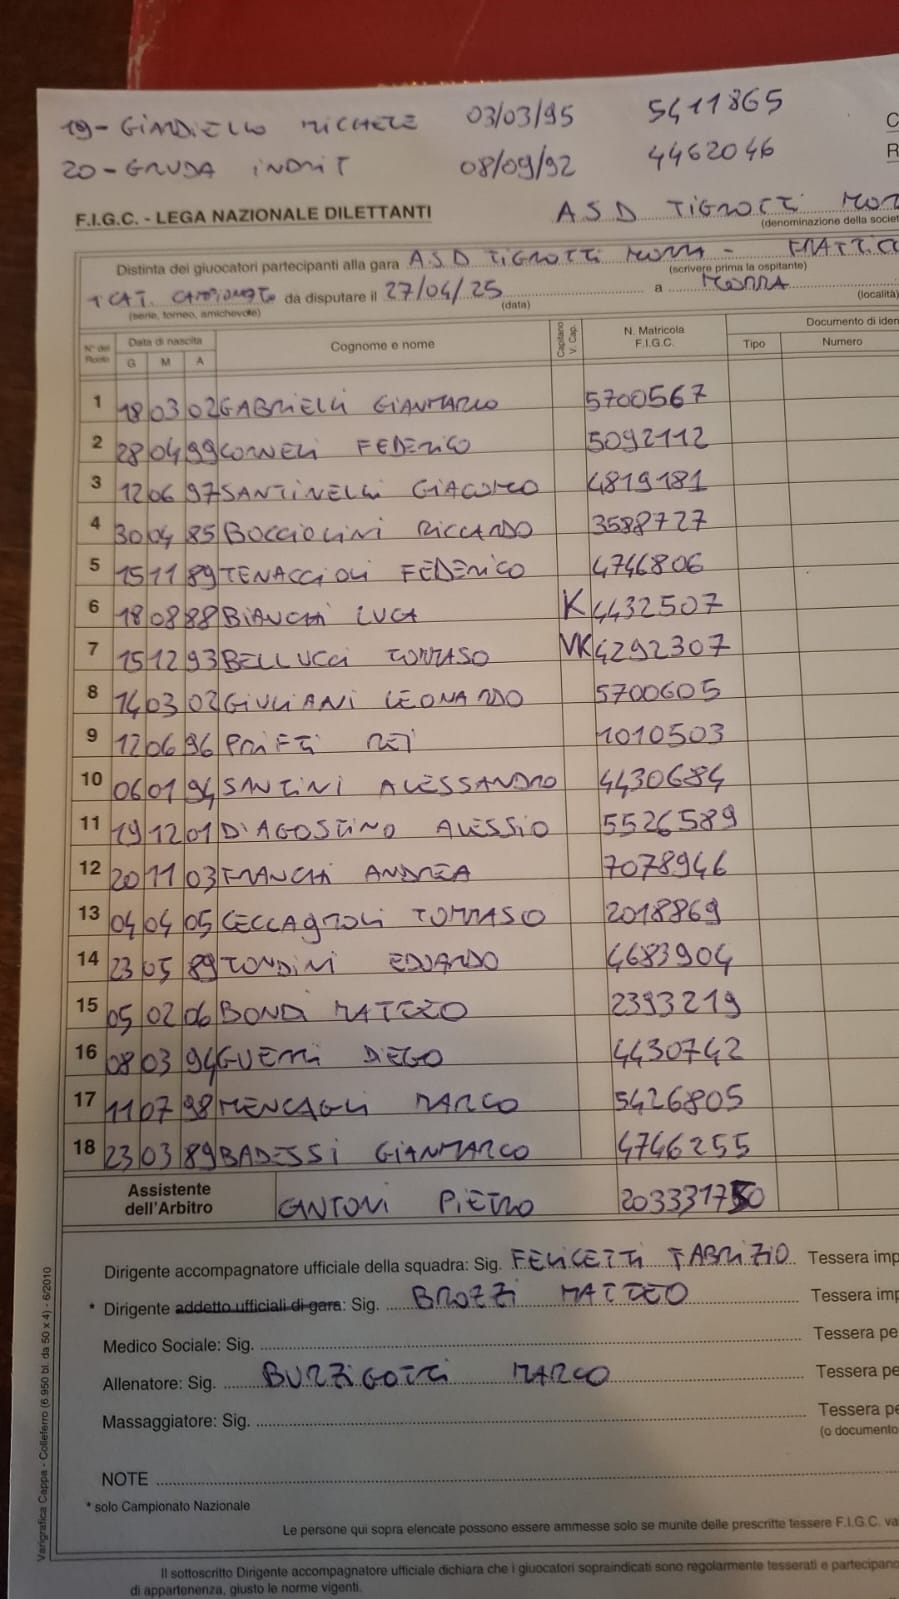 19- GIARDIELLO MICHELE 03/03/95 5411865
20- GRUDA INDRIT 08/09/92 4462046
C
R
F.I.G.C. - LEGA NAZIONALE DILETTANTI A S D TIGROTTI MOR
(denominazione della societ
Distinta dei giuocatori partecipanti alla gara A.S.D TIGROTTI MORRA - FRATTIC
(scrivere prima la ospitante)
1 CAT. CAMPIONATO da disputare il 27/04/25 a MORRA
(serie, torneo, amichevole) (data) (località)
N° del Ruolo Data di nascita G M A Cognome e nome Capitano V. Cap. N. Matricola F.I.G.C. Documento di iden
Tipo Numero
1 18 03 02 GABRIELLI GIANMARCO 5700567
2 28 04 99 CORNELI FEDERICO 5092112
3 12 06 97 SANTINELLI GIACOMO 4819181
4 30 04 85 BOCCIOLINI RICCARDO 3588727
5 15 11 89 TENACCIOLI FEDERICO 4746806
6 18 08 88 BIANCHI LUCA K 4432507
7 15 12 93 BELLUCCI TOMMASO VK 4292307
8 14 03 02 GIULIANI LEONARDO 5700605
9 12 06 96 PRIFTI RETI 1010503
10 06 01 94 SANTINI ALESSANDRO 4430684
11 19 12 01 D'AGOSTINO ALESSIO 5526589
12 20 11 03 FRANCHI ANDREA 7078946
13 04 04 05 CECCAGNOLI TOMMASO 2018869
14 23 05 89 TONDINI EDOARDO 4683904
15 05 02 06 BONDI MATTEO 2393219
16 08 03 94 GUERRI DIEGO 4430742
17 11 07 98 MENCAGLI MARCO 5426805
18 23 03 89 BADESSI GIANMARCO 4746255
Assistente dell'Arbitro CANTONI PIETRO
Dirigente accompagnatore ufficiale della squadra: Sig. FELICETTI FABRIZIO Tessera imp
* Dirigente addetto ufficiali di gara: Sig. BROZZI MATTEO Tessera imp
Medico Sociale: Sig. Tessera pe
Allenatore: Sig. BURZIGOTTI MARCO Tessera pe
Massaggiatore: Sig. Tessera pe
(o documento
NOTE
* solo Campionato Nazionale
Le persone qui sopra elencate possono essere ammesse solo se munite delle prescritte tessere F.I.G.C. va
Il sottoscritto Dirigente accompagnatore ufficiale dichiara che i giuocatori sopraindicati sono regolarmente tesserati e partecipano
di appartenenza, giusto le norme vigenti.
Varigrafica Cappa - Colleferro (6.950 bl. da 50 x 4) - 6/2010